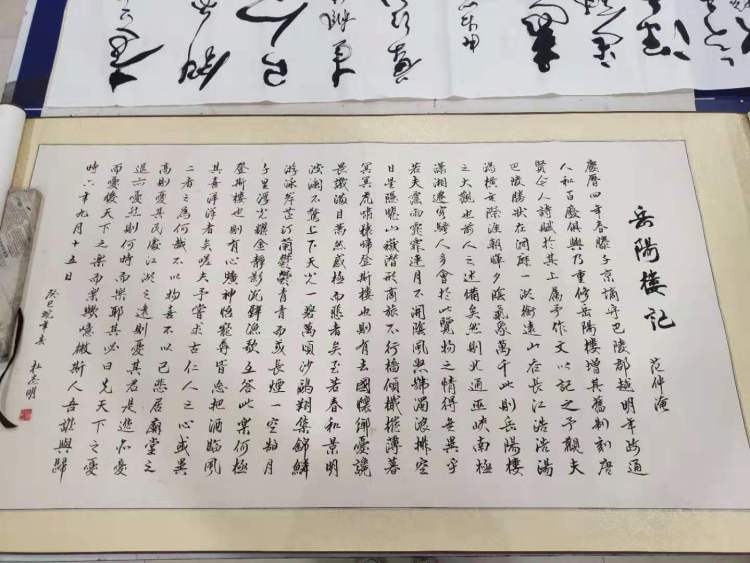 岳陽樓記
范仲淹
慶曆四年春滕子京謫守巴陵郡越明年政通
人和百廢俱興乃重修岳陽樓增其舊制刻唐
賢今人詩賦於其上屬予作文以記之予觀夫
巴陵勝狀在洞庭一湖銜遠山吞長江浩浩湯
湯橫無際涯朝暉夕陰氣象萬千此則岳陽樓
之大觀也前人之述備矣然則北通巫峽南極
瀟湘遷客騷人多會於此覽物之情得無異乎
若夫霪雨霏霏連月不開陰風怒號濁浪排空
日星隱曜山嶽潛形商旅不行檣傾楫摧薄暮
冥冥虎嘯猿啼登斯樓也則有去國懷鄉憂讒
畏譏滿目蕭然感極而悲者矣至若春和景明
波瀾不驚上下天光一碧萬頃沙鷗翔集錦鱗
游泳岸芷汀蘭鬱鬱青青而或長煙一空皓月
千里浮光耀金靜影沉璧漁歌互答此樂何極
登斯樓也則有心曠神怡寵辱皆忘把酒臨風
其喜洋洋者矣嗟夫予嘗求古仁人之心或異
二者之為何哉不以物喜不以己悲居廟堂之
高則憂其民處江湖之遠則憂其君是進亦憂
退亦憂然則何時而樂耶其必曰先天下之憂
而憂後天下之樂而樂歟噫微斯人吾誰與歸
時六年九月十五日
癸巳蛇年 杜志明